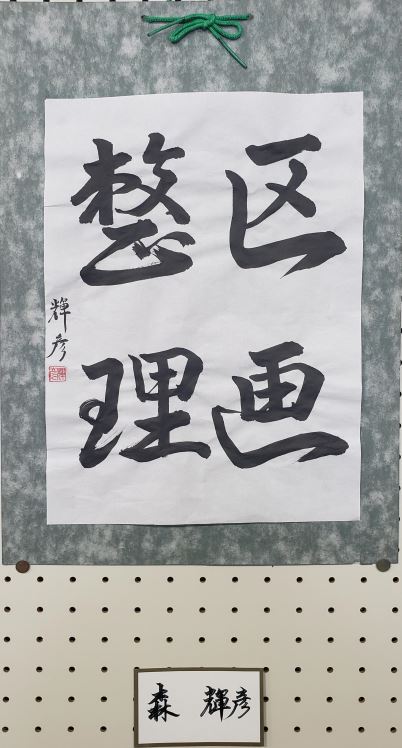 区画
整理
輝彦
森 輝彦